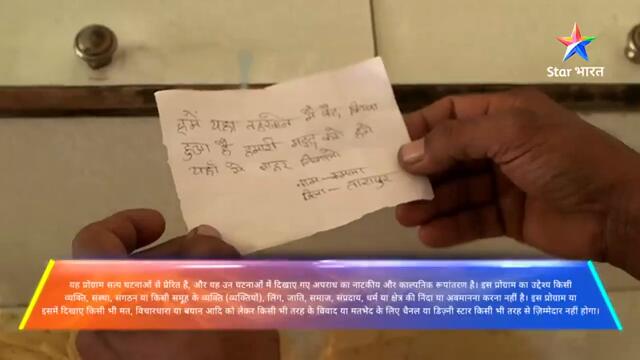 Star भारत
हमें यहा तहखाने मे कैद, किया
हुआ है हमारी मदद करो हमे
यहाँ से बाहर निकालो
नाम - कमला
जिला - तारापुर
यह प्रोग्राम सत्य घटनाओं से प्रेरित है, और यह उन घटनाओं में दिखाए गए अपराध का नाटकीय और काल्पनिक रूपांतरण है। इस प्रोग्राम का उद्देश्य किसी
व्यक्ति, संस्था, संगठन या किसी समूह के व्यक्ति (व्यक्तियों), लिंग, जाति, समाज, संप्रदाय, धर्म या क्षेत्र की निंदा या अवमानना करना नहीं है। इस प्रोग्राम या
इसमें दिखाए किसी भी मत, विचारधारा या बयान आदि को लेकर किसी भी तरह के विवाद या मतभेद के लिए चैनल या डिज़्नी स्टार किसी भी तरह से ज़िम्मेदार नहीं होगा।